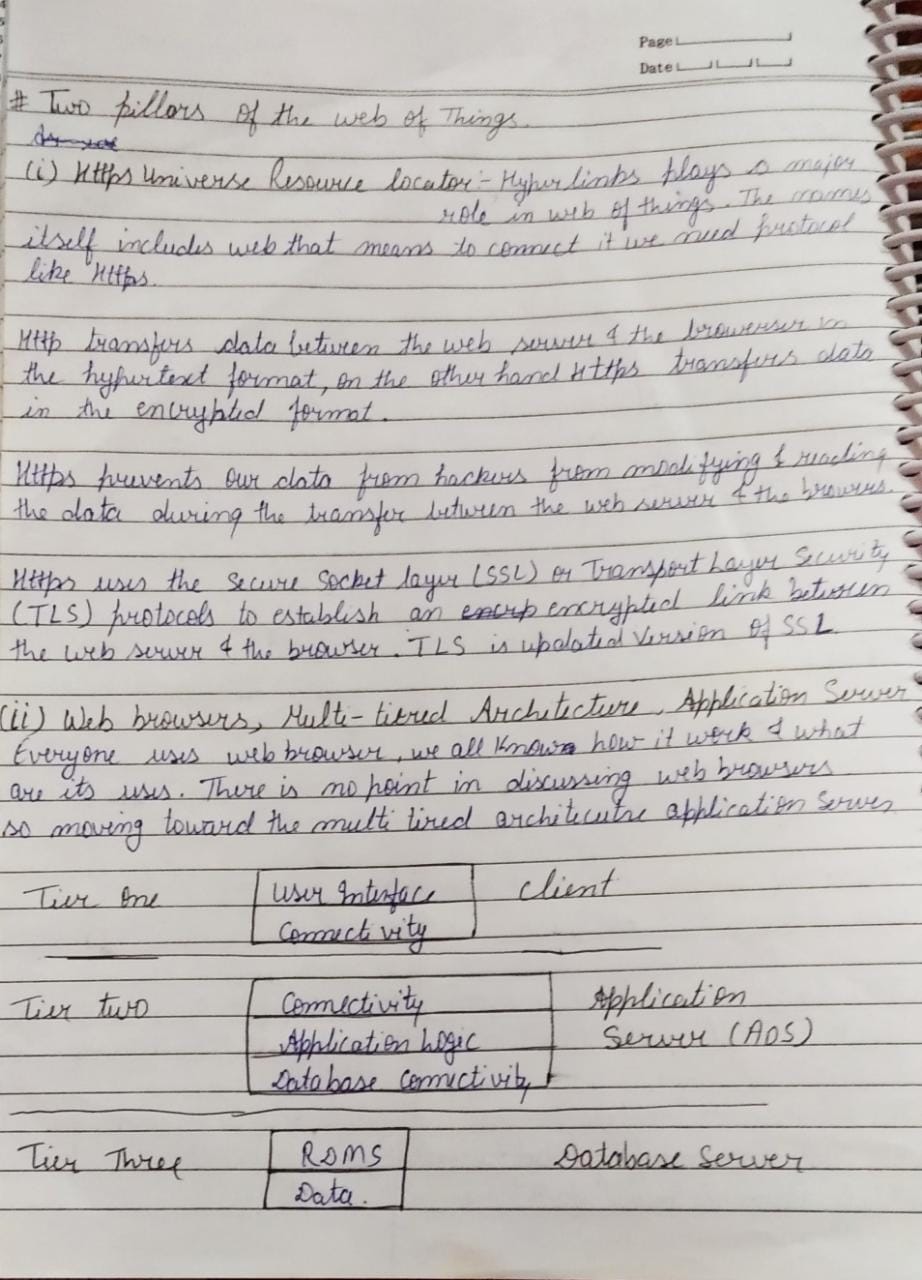 Page
Date
# Two pillars of the web of Things.
(i) Https Universe Resource locator :- Hyperlinks plays a major
role in web of things. The names
itself includes web that means to connect it we need protocol
like Https.
Http transfers data between the web server & the browerser in
the hypertext format, on the other hand Https transfers data
in the encrypted format.
Https prevents our data from hackers from modifying & reading
the data during the transfer between the web server & the browers.
Https uses the Secure Socket layer (SSL) or Transport Layer Security
(TLS) protocols to establish an encrypted link between
the web server & the browser. TLS is updated Version of SSL.
(ii) Web browsers, Multi-tiered Architecture, Application Server
Everyone uses web browser, we all know how it work & what
are its uses. There is no point in discussing web browsers
so moving toward the multi tired architecutre application Server
Tier One
User Interface
Client
Connectivity
Tier two
Connectivity
Application
Application Logic
Server (AOS)
Database Connectivity
Tier Three
RDMS
Database Server
Data.